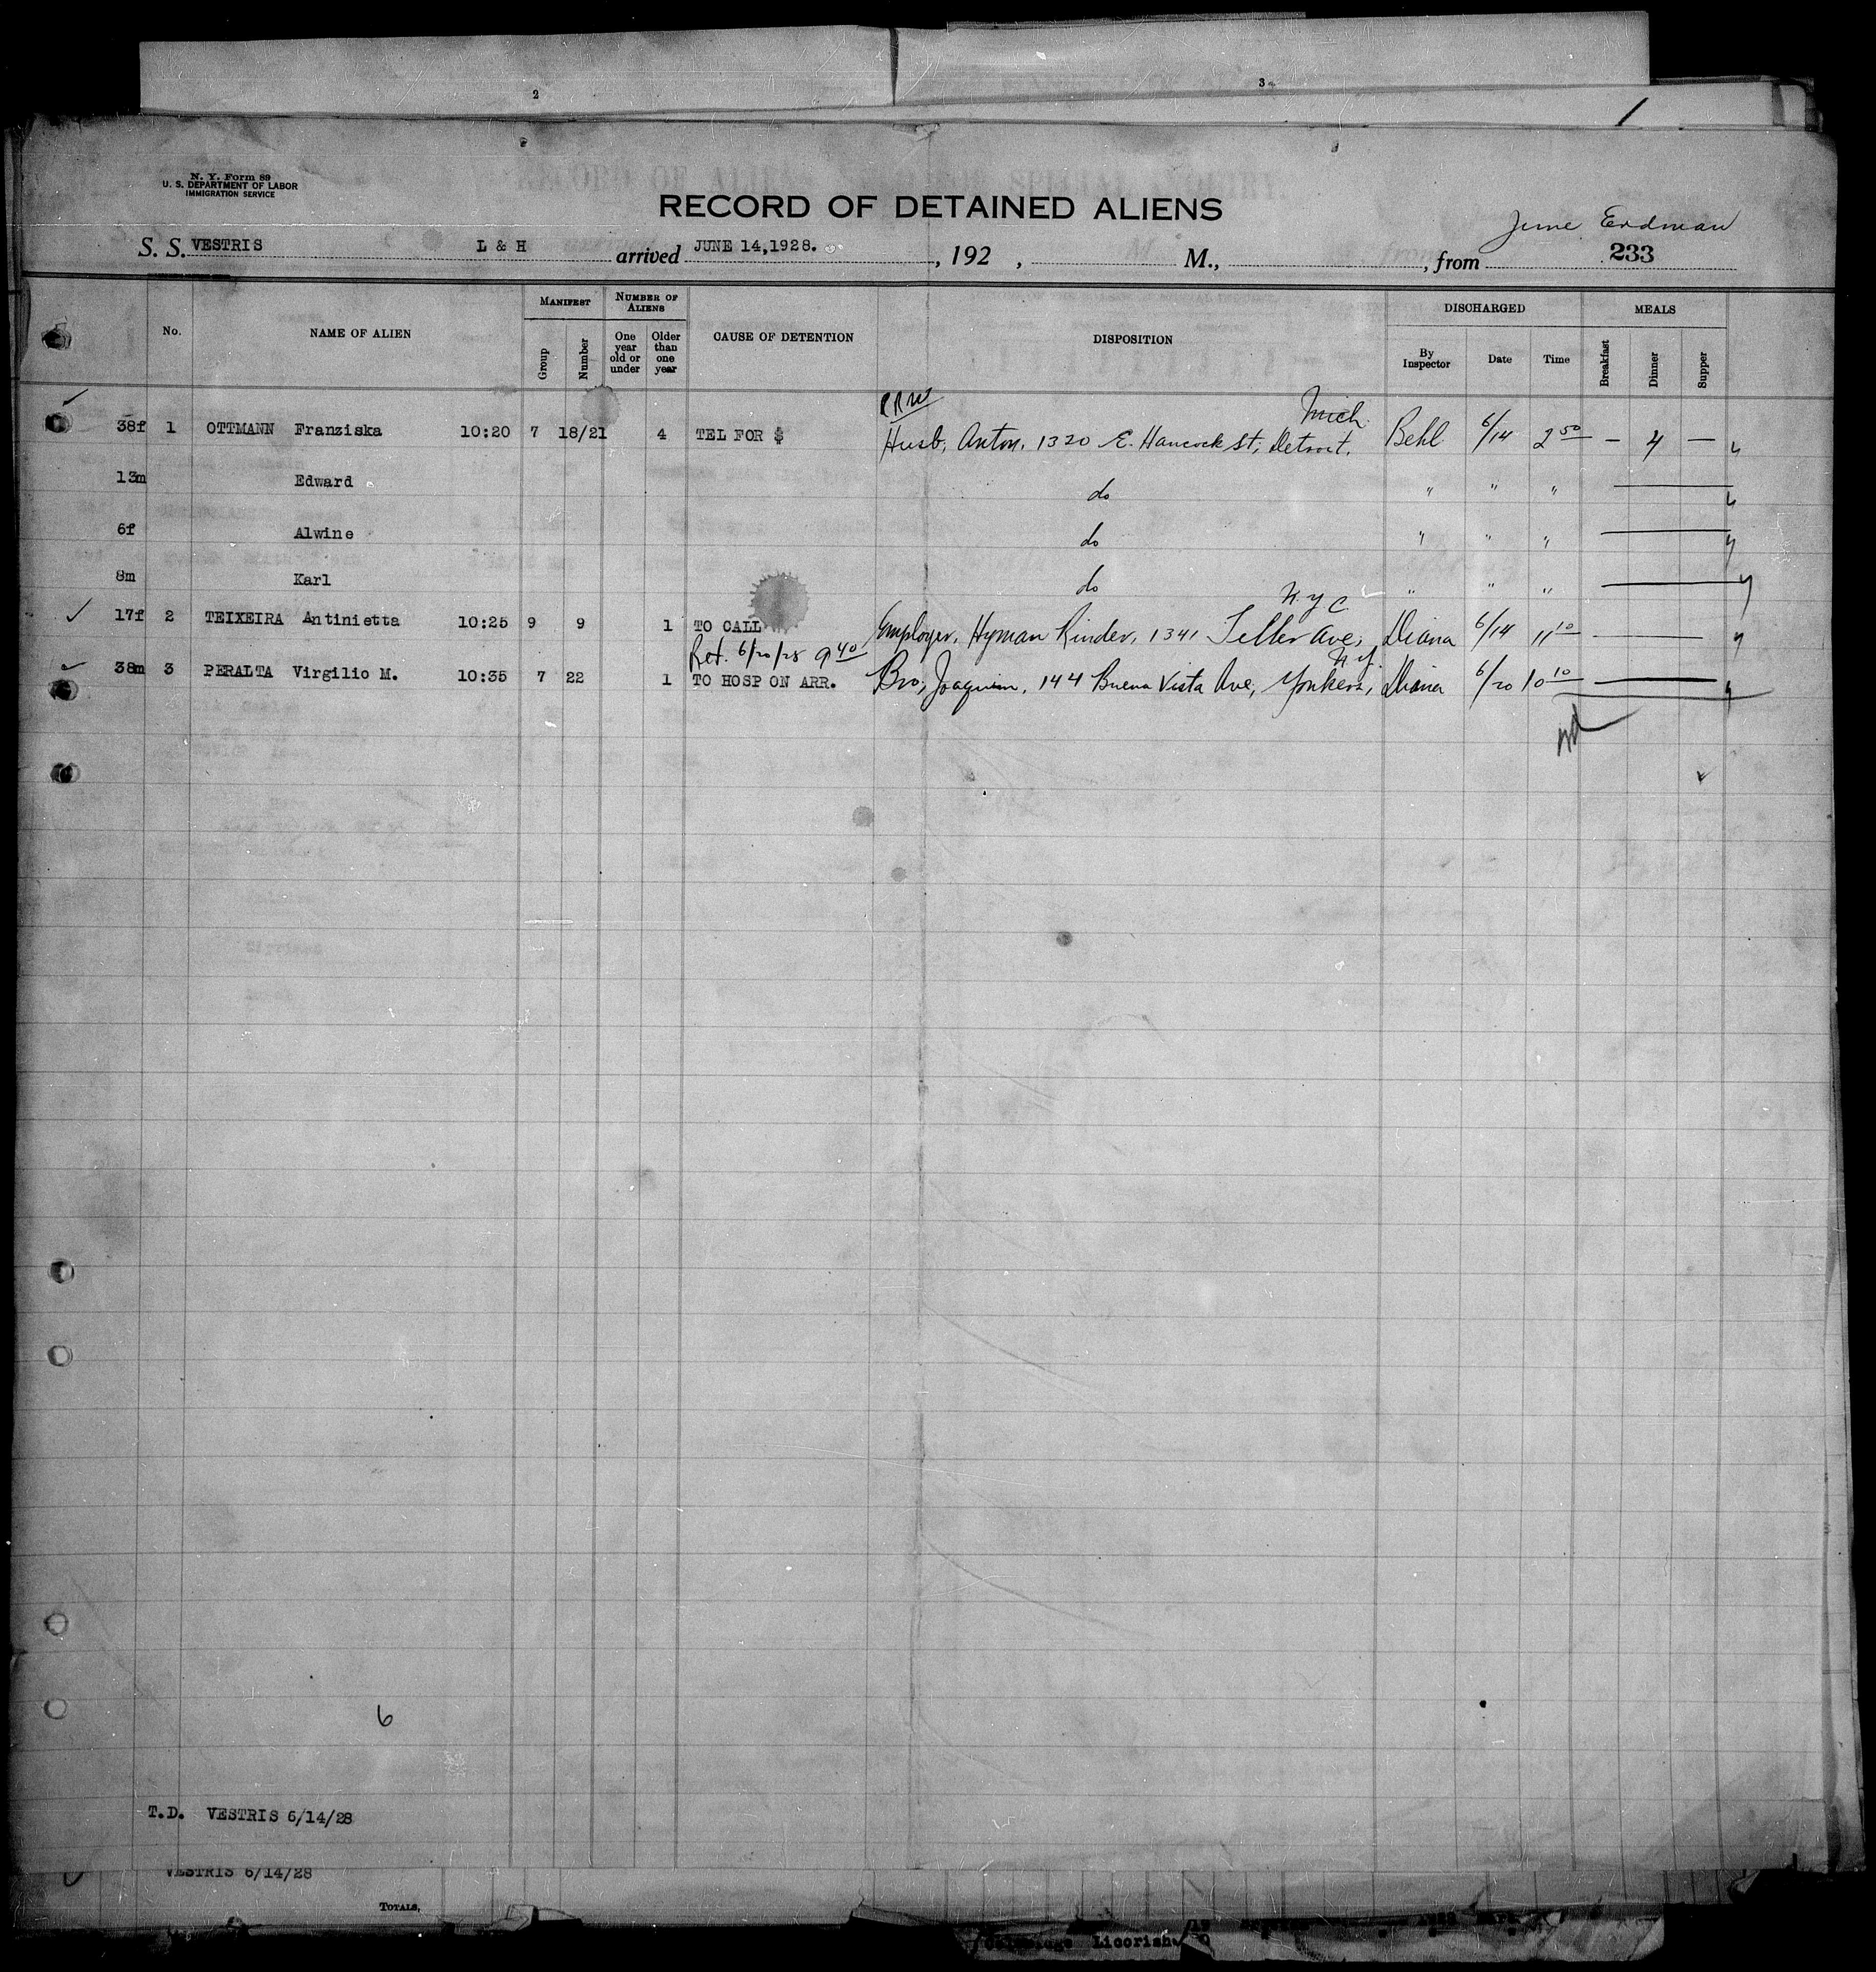 2
3
N. Y. Form 89
U. S. DEPARTMENT OF LABOR
IMMIGRATION SERVICE
RECORD OF DETAINED ALIENS
June Erdman
S. S. VESTRIS L & H arrived JUNE 14,1928. , 192 , M., , from 233
No. NAME OF ALIEN MANIFEST Group Number NUMBER OF ALIENS One year old or under Older than one year CAUSE OF DETENTION DISPOSITION DISCHARGED By Inspector Date Time MEALS Breakfast Dinner Supper
Mich.
38f 1 OTTMANN Franziska 10:20 7 18/21 4 TEL FOR $ Husb, Anton, 1320 E. Hancock St, Detroit, Behl 6/14 2 50 — 4 —
13m Edward do " " "
6f Alwine do " " "
8m Karl do " " "
N.Y.C
17f 2 TEIXEIRA Antinietta 10:25 9 9 1 TO CALL Employer, Hyman Rinder, 1341 Teller Ave, Diana 6/14 11 10
Ret. 6/20/28 9 40 N.Y.
38m 3 PERALTA Virgilio M. 10:35 7 22 1 TO HOSP ON ARR. Bro, Joaquim, 144 Buena Vista Ave, Yonkers, Diana 6/20 10 10
6
T.D. VESTRIS 6/14/28
VESTRIS 6/14/28
TOTALS,
Licorish